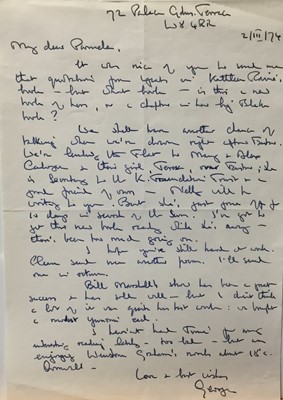 72 Palace Gdns. Terrace
W8 4RR
2/III/74
My dear Pamela,
It was nice of you to send me
that quotation from Yeats in Kathleen Raine's
book — but what book — is this a new
book of hers, or a chapter in her big Blake
book?
We shall have another chance of
talking when we're down right after Easter.
We're lending the Flat to Mary & Alex
& this girl, over Easter; she
is Secretary to the U.K. Trust & a
good friend of ours — Molly will be
writing to you. But she's just gone off for
10 days in search of the sun. I've got to
get this new book ready while she's away —
there's been too much going on.
I hope you're still hard at work.
Please send me another poem. I'll send
one in return.
Bill show has been a great
success & has sold well — but I don't think
a lot of it as good as his last work: we bought
a modest one.
I haven't had time for any
interesting reading lately — too late — but am
enjoying Winston Graham's novels about 18c.
Cornwall —
Love & best wishes
George